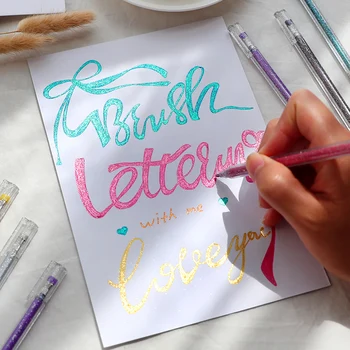 Brush
Lettering
with me
Love you